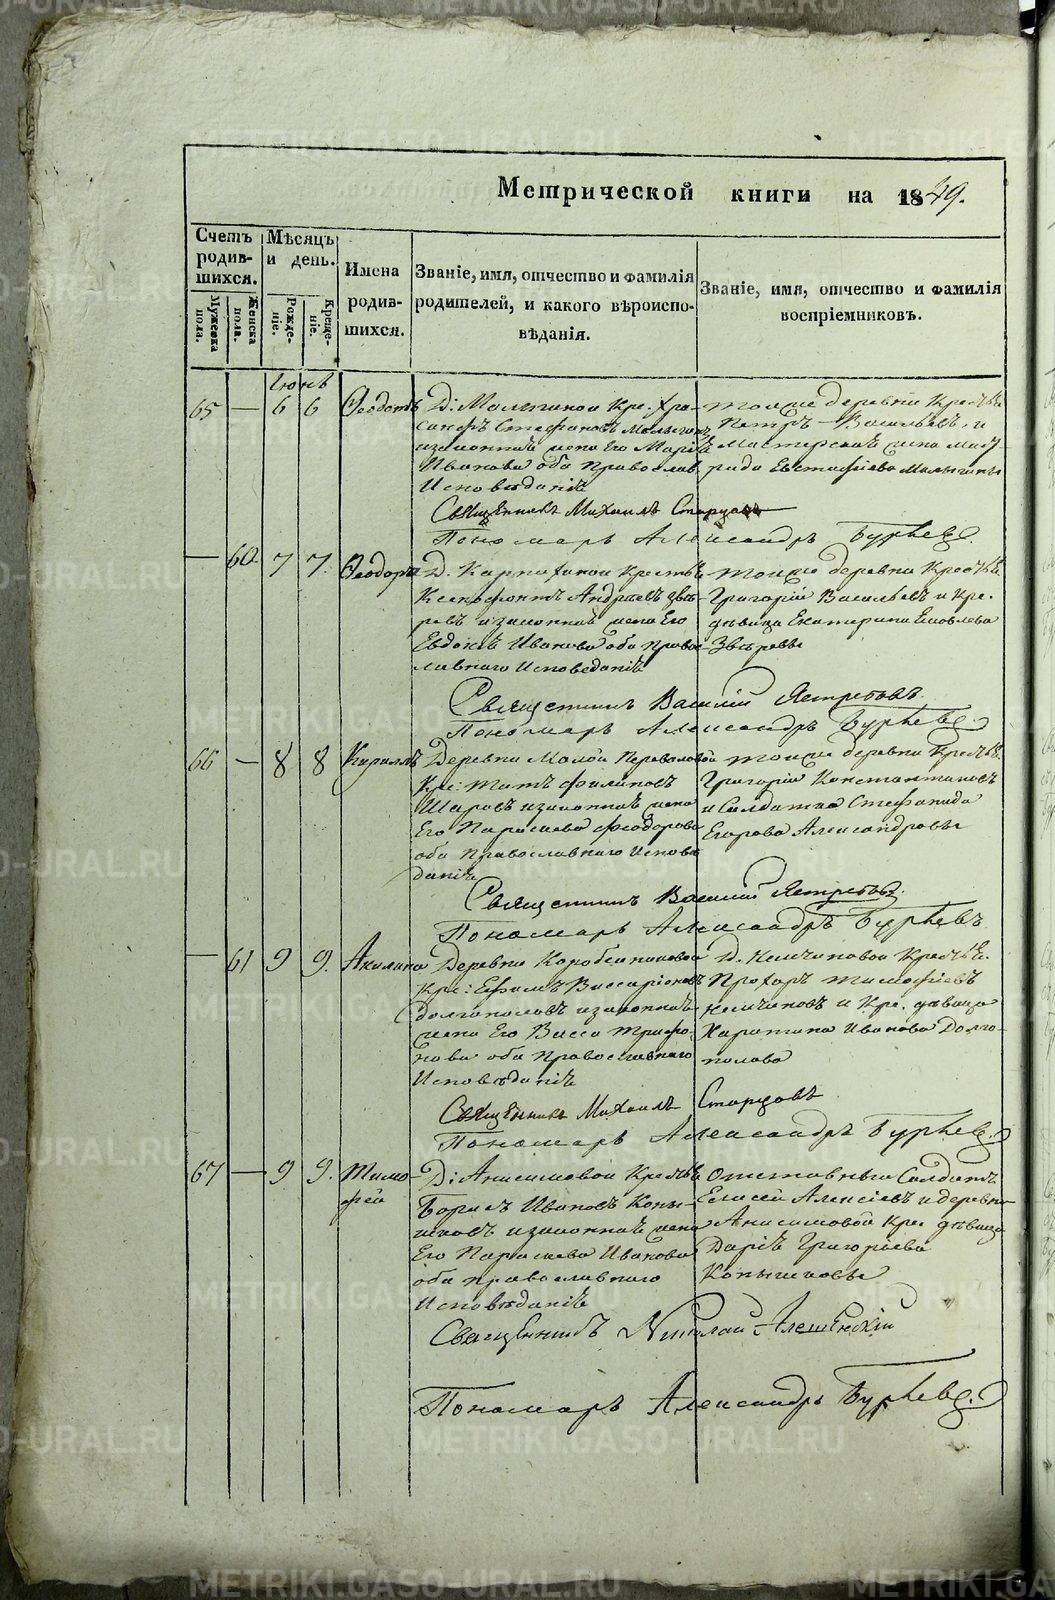 METRIKI.GASO-URAL.RU
Метрической книги на 1849.
Счетъ родив-шихся.
Мужеска пола.
Женска пола.
Мѣсяцъ и день.
Рожде-ніе.
Креще-ніе.
Имена родив-шихся.
Званіе, имя, отчество и фамилія
родителей, и какого вѣроиспо-
вѣданія.
Званіе, имя, отчество и фамилія
воспріемниковъ.
Іюнь
65 — 6 6 Ѳеодотъ
Д: Малыгиной Кре.
Стефановъ Малыгинъ
и законная жена Его Марія
Иванова оба Православ.
Исповѣданія
тойже деревни Крест.
Петръ Васильевъ и
жена
Евстафіева Малыгины
Священникъ Михаилъ Старцовъ
Пономарь Александръ Бурчевъ.
— 60 7 7. Ѳеодора
Д. Крестья.
Ксенофонтъ Андреевъ Звѣ-
ревъ и законная жена Его
Евдокія Иванова оба Право-
славнаго Исповеданія
тойже деревни Крест.
Григорій Васильевъ и Кре.
дѣвица Екатерина Яковлева
Звѣревы
Священникъ Василій Ястребовъ.
Пономарь Александръ
66 — 8 8 Кириллъ
Деревни Малой Переваловой
Кре: Филиповъ
Шаровъ и законная жена
Его Параскева Феодорова
оба Православнаго Исповѣ
данія
тойже деревни Крест.
Григорій Константиновъ
и Солдатка Стефанида
Егорова Александровы
Священникъ Василій Ястребовъ.
Пономарь Александръ
— 61 9 9. Акилина
Деревни
Кре: Ефимъ Виссаріоновъ
Долгополовъ и законная
жена Его Васса Трифо-
нова оба Православнаго
Исповѣданія
Д. Крест.
Прохоръ Тимофіевъ
и Кре. дѣвица
Харитина Иванова Долго-
полова
Священникъ Михаилъ Старцовъ
Пономарь Александръ
67 — 9 9. Тимо-
фей
Д: Анисимовой Крест.
Борисъ Ивановъ Копы-
и законная жена
Его Параскева Иванова
оба православнаго
Исповѣданія
Отставный Солдатъ
Елисей Алексіевъ и деревни
Анисимовой Кре дѣвица
Дарія Григоріева
Священникъ Николай
Пономарь Александръ